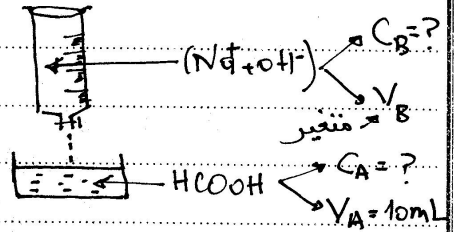 C_B = ?
(Na⁺ + OH⁻)
V_B
متغير
HCOOH
C_A = ?
V_A = 10mL